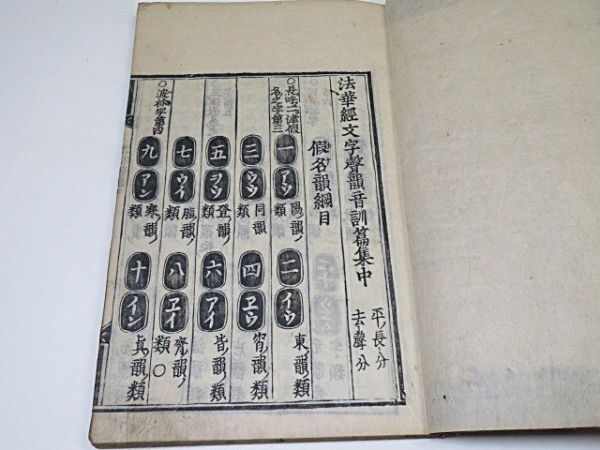 法華經文字聲韻音訓篇集中
平長分
去聲分
假名韻綱目
○長呼二津假
名之字第三
一 アウ 陽韻ノ類
二 イウ 東韻ノ類
三 ウウ 同韻類
四 ヱウ 宵韻ノ類
五 ヲウ 登韻ノ類
六 アイ 皆韻ノ類
七 ウイ 脂韻ノ類
八 ヱイ 齊韻ノ類○
○波衿字第四
九 アン 寒韻ノ類
十 イン 真韻ノ類